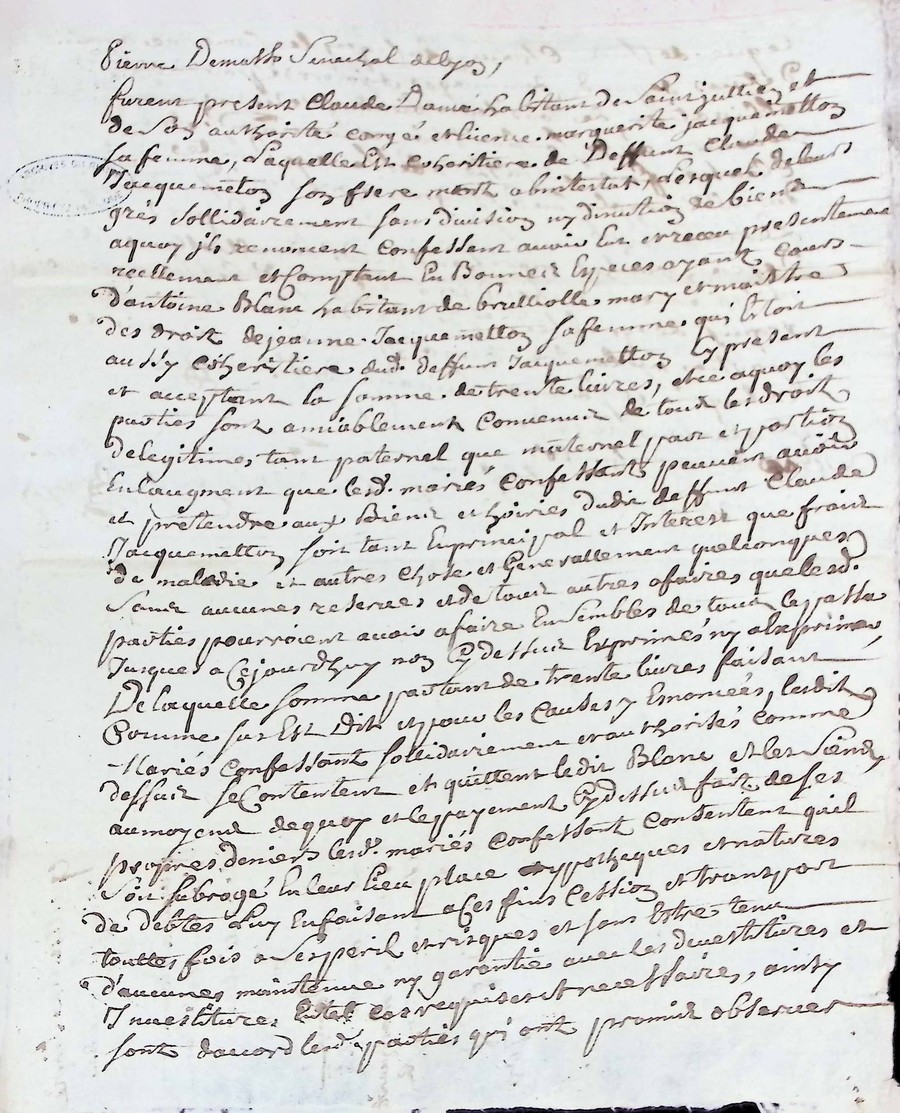 Pierre Demasso Senechal delyon,
furent present Claude Damé habitant de Saint jullien et
de Son authorité congé et licence marguerite jacquemetton
sa femme, Laquelle Est coheritiere de Deffunt Claude
Jacquemeton son frere mort abintestat, Lesquel deleurs
grés sollidairement sans division ny dinution de biens
aquoy jls renoncent confessent avoir Eut et receu presentement
reellement et Comptant En Bonnes Especes ayant cours
D'antoine Blanc habitant de brulliolle mary et maistre
des droit dejeanne Jacquemetton safemme qui Etoit
aussy coheritiere dud. deffunt Jacquemetton y present
et acceptant la somme de trente livres, et ce aquoy les
parties sont amiablement Convenues de tous les droit
delegitimes tant paternel que maternel part et portion
Enlaugment que lesd. mariés Confessants peuvent avoir
et pretendre aux Biens et hoiries dudit deffunt Claude
Jacquemetton soit tant En principal et Interest que frais
de maladie et autres chose et Generallement quelconques
Sans aucunes reserves et de tous autres afaires que lesd.
parties pourroient avoir afaire EnSembles de tous le passé
Jusques a Cejourdhuy non Cy dessus Exprimés ny a Exprimer,
De laquelle somme partant de trente livres faisant
Comme sus Est Dit et pour les Causes y Enoncées, lesdit
Mariés confessant sollidairement et authorisés comme
dessus se Contentent et quittent ledit Blanc et les Siens,
aumoyens dequoy et le payement Cy dessus fait de ses
propres deniers lesd. mariés confessant consentent quil
Soit subrogé En leur lieu place hypotheques et natures
de debtes Luy Enfaisant aCes fins Cession et transport
touttes fois a Ses peril et risques et sans Estre tenu
d'aucunes maintenue ny garantie avec les devestitures et
Investitures En tel cas requises et necessaires, ainsy
sont daccord lesd. parties qui ont promis observer